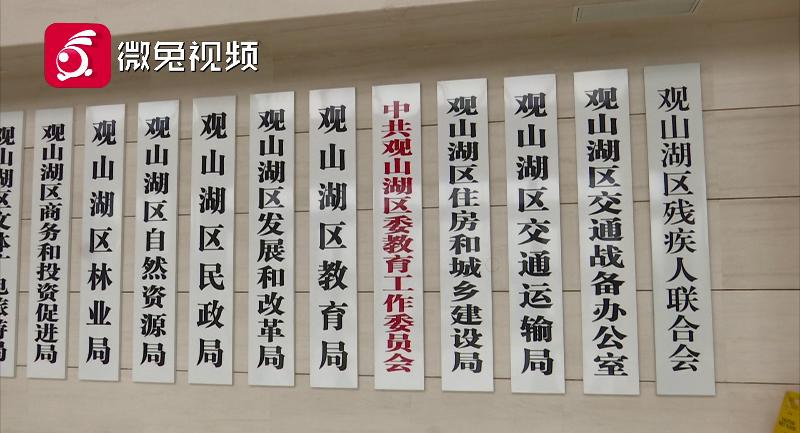 微兔视频
观山湖区文体广电旅游局
观山湖区商务和投资促进局
观山湖区林业局
观山湖区自然资源局
观山湖区民政局
观山湖区发展和改革局
观山湖区教育局
中共观山湖区委教育工作委员会
观山湖区住房和城乡建设局
观山湖区交通运输局
观山湖区交通战备办公室
观山湖区残疾人联合会